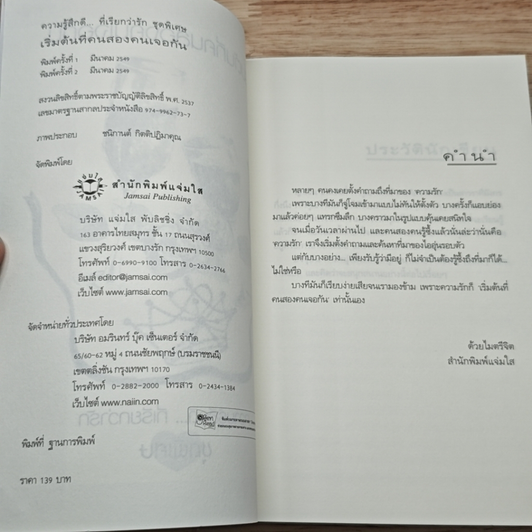 ความรู้สึกดี... ที่เรียกว่ารัก ชุดพิเศษ
เริ่มต้นที่คนสองคนเจอกัน
พิมพ์ครั้งที่ 1 มีนาคม 2549
พิมพ์ครั้งที่ 2 มีนาคม 2549
สงวนลิขสิทธิ์ตามพระราชบัญญัติลิขสิทธิ์ พ.ศ. 2537
เลขมาตรฐานสากลประจำหนังสือ 974-9962-73-7
ภาพประกอบ ชนิกานต์ กิตติปฏิมาคุณ
จัดพิมพ์โดย
สำนักพิมพ์แจ่มใส
Jamsai Publishing
บริษัท แจ่มใส พับลิชชิ่ง จำกัด
163 อาคารไทยสมุทร ชั้น 17 ถนนสุรวงศ์
แขวงสุริยวงศ์ เขตบางรัก กรุงเทพฯ 10500
โทรศัพท์ 0-6990-9100 โทรสาร 0-2634-2766
อีเมล์ editor@jamsai.com
เว็บไซต์ www.jamsai.com
จัดจำหน่ายทั่วประเทศโดย
บริษัท อมรินทร์ บุ๊ค เซ็นเตอร์ จำกัด
65/60-62 หมู่ 4 ถนนชัยพฤกษ์ (บรมราชชนนี)
เขตตลิ่งชัน กรุงเทพฯ 10170
โทรศัพท์ 0-2882-2000 โทรสาร 0-2434-1384
เว็บไซต์ www.naiin.com
พิมพ์ที่ ฐานการพิมพ์
ราคา 139 บาท
คำนำ
หลายๆ คนคงเคยตั้งคำถามถึงที่มาของ 'ความรัก'
เพราะบางทีมันก็จู่โจมเข้ามาแบบไม่ทันให้ตั้งตัว บางครั้งก็แอบย่อง
มาแล้วค่อยๆ แทรกซึมลึก บางคราวมาในรูปแบบคุ้นเคยสนิทใจ
จนเมื่อวันเวลาผ่านไป และคนสองคนรู้ซึ้งแล้วนั่นล่ะว่านั่นคือ
ความรัก เราจึงเริ่มตั้งคำถามและค้นหาที่มาของไออุ่นรอบตัว
แต่กับบางอย่าง... เพียงรับรู้ว่ามีอยู่ ก็ไม่จำเป็นต้องรู้ซึ้งถึงที่มาก็ได้...
ไม่ใช่หรือ
บางทีมันก็เรียบง่ายเสียจนเรามองข้าม เพราะความรักก็ 'เริ่มต้นที่
คนสองคนเจอกัน' เท่านั้นเอง
ด้วยไมตรีจิต
สำนักพิมพ์แจ่มใส